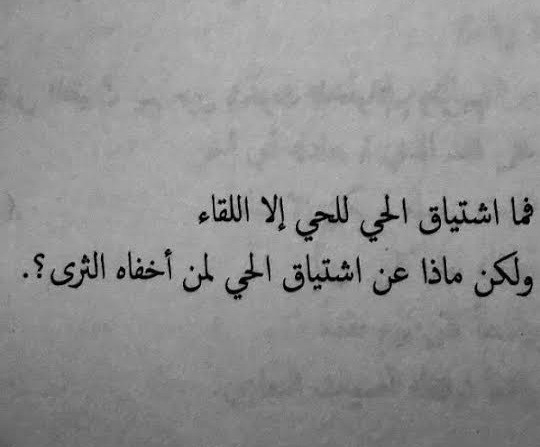 فما اشتياق الحي للحي إلا اللقاء
ولكن ماذا عن اشتياق الحي لمن أخفاه الثرى؟.